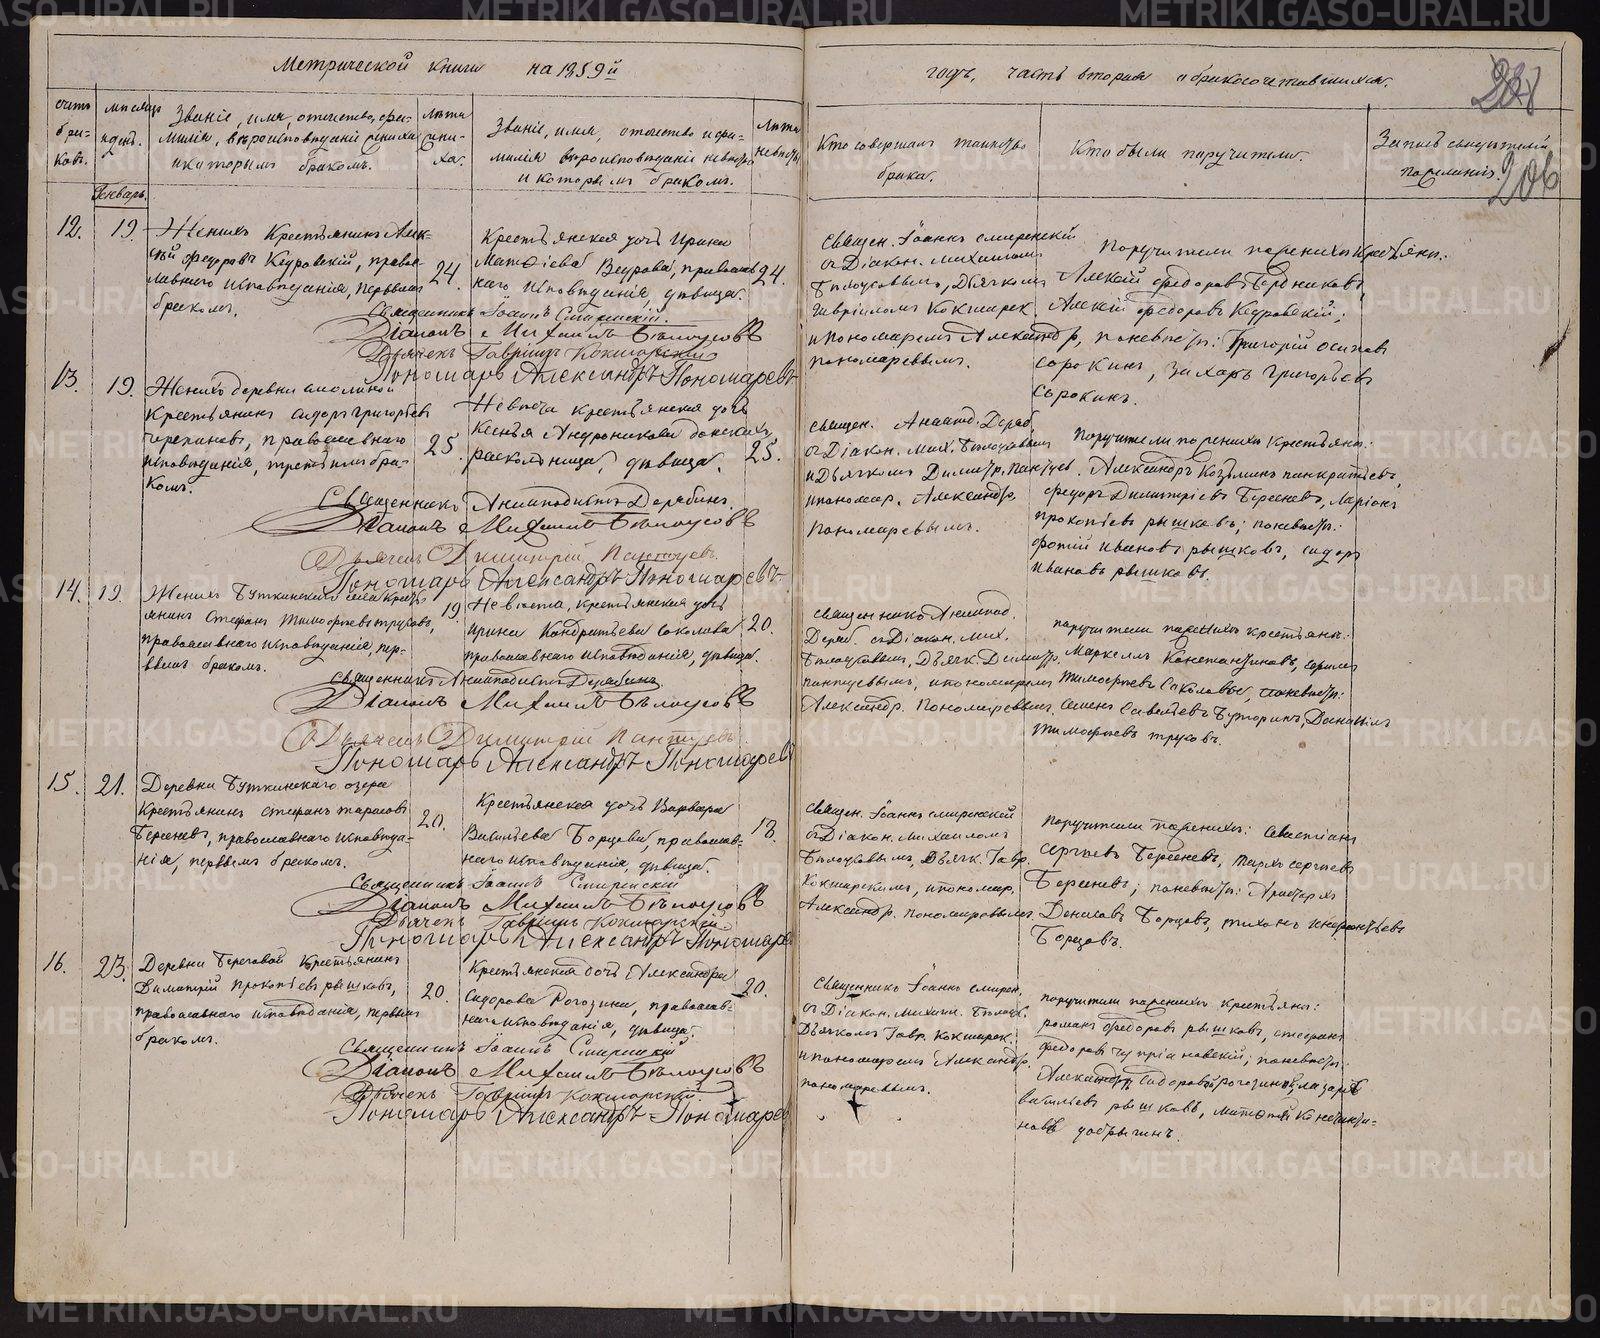 Метрической книги на 1859й годъ, часть вторая о бракосочетавшихся.
206
счетъ браковъ.
мѣсяцъ и день.
Званіе, имя, отчество, фамилія, вѣроисповѣданіе жениха и которымъ бракомъ.
Лѣта жениха.
Званіе, имя, отчество и фамилія вѣроисповѣданіе невѣсты и которымъ бракомъ.
Лѣта невѣсты
Кто совершалъ таинство брака.
Кто были поручители.
Запись свидѣтелей по желанію.
Генварь.
12.
19.
Женихъ Крестьянинъ Алексѣй
Федоровъ Кедровскій, православнаго
исповѣданія, первымъ
бракомъ.
24.
Крестьянская дочь Ирина
Матѳіева Ведрова, православнаго
исповѣданія, дѣвица.
24.
Священникъ Іоаннъ Смиренскій
Діаконъ Михаилъ Бѣлоусовъ
Дьячекъ Гавріилъ Кокшарскій
Пономарь Александръ Пономаревъ
Священ. Іоаннъ Смиренскій
съ Діакон. Михаиломъ
Бѣлоусовымъ, Дьячкомъ
Гавріиломъ Кокшарск.
и пономаремъ Александр.
Пономаревымъ.
Поручители по женихѣ Крестьяне:
Алексѣй Федоровъ Береников,
Алексѣй Федоровъ Кедровскій;
по невѣстѣ: Григорій Осиповъ
Сорокинъ, Захаръ Григорьевъ
Сорокинъ.
13.
19.
Женихъ деревни Смолиной
Крестьянинъ Сидоръ Григорьевъ
Черепановъ, православнаго
исповѣданія, третьимъ бракомъ.
25.
Невѣста крестьянская дочь
Ксенья Андроникова Донскихъ,
раскольница, дѣвица.
25.
Священникъ Анемподистъ Дерябинъ
Діаконъ Михаилъ Бѣлоусовъ
Дьячекъ Димитрій Пантуевъ
Пономарь Александръ Пономаревъ
Священ. Анемпод. Деряб.
съ Діакон. Мих. Бѣлоусовымъ
и Дьячкомъ Димитр. Пантуев.
и пономар. Александр.
Пономаревымъ.
Поручители по женихѣ Крестьяне:
Александръ Козьминъ Панкратьевъ,
Федоръ Димитріевъ Береневъ, Ларіонъ
Прокопьевъ Рышковъ; по невѣстѣ:
Фотій Ивановъ Рышковъ, Сидоръ
Ивановъ Рышковъ.
14.
19.
Женихъ Буткинскаго села Крестьянинъ
Стефанъ Тимофѣевъ Труховъ,
православнаго исповѣданія, первымъ
бракомъ.
19.
Невѣста, крестьянская дочь
Ирина Кондратьева Соколова
православнаго исповѣданія, дѣвица.
20.
Священникъ Анемподистъ Дерябинъ
Діаконъ Михаилъ Бѣлоусовъ
Дьячекъ Димитрій Пантуевъ
Пономарь Александръ Пономаревъ
Священникъ Анемпод.
Деряб. съ Діакон. Мих.
Бѣлоусовымъ, Дьячк. Димитр.
Пантуевымъ, и пономаремъ
Александр. Пономаревымъ.
Поручители по женихѣ крестьяне:
Маркеллъ Константиновъ,
Тимофѣевъ Соколовы, по невѣстѣ:
Семенъ Савельевъ Буторинъ, Даніилъ
Тимофѣевъ Труховъ.
15.
21.
Деревни Буткинскаго озера
Крестьянинъ Стефанъ Тарасовъ
Береневъ, православнаго исповѣданія,
первымъ бракомъ.
20.
Крестьянская дочь Варвара
Васильева Борцова, православнаго
исповѣданія, дѣвица.
18.
Священникъ Іоаннъ Смиренскій
Діаконъ Михаилъ Бѣлоусовъ
Дьячекъ Гавріилъ Кокшарскій
Пономарь Александръ Пономаревъ
Священ. Іоаннъ Смиренскій
съ Діакон. Михаиломъ
Бѣлоусовымъ, Дьячк. Гавр.
Кокшарскимъ, и пономар.
Александр. Пономаревымъ.
Поручители по женихѣ: Севастіанъ
Сергѣевъ Береневъ, Сергѣевъ
Береневъ; по невѣстѣ: Аристархъ
Денисовъ Борцовъ, Тихонъ
Борцовъ.
16.
23.
Деревни Береговой Крестьянинъ
Димитрій Прокопьевъ Рышковъ,
православнаго исповѣданія, первымъ
бракомъ.
20.
Крестьянская дочь Александра
Сидорова Рогозина, православнаго
исповѣданія, дѣвица.
20.
Священникъ Іоаннъ Смиренскій
Діаконъ Михаилъ Бѣлоусовъ
Дьячекъ Гавріилъ Кокшарскій
Пономарь Александръ Пономаревъ
Священникъ Іоаннъ Смирен.
съ Діакон. Михаил. Бѣлоус.
Дьячкомъ Гавр. Кокшарск.
и пономаремъ Александр.
Пономаревымъ.
Поручители по женихѣ крестьяне:
Романъ Федоровъ Рышковъ, Стефанъ
Федоровъ Чупріановскій; по невѣстѣ:
Александръ Сидоровъ Рогозинъ, Лазарь
Васильевъ Рышковъ, Матѳѣй Константиновъ
Добрынинъ.
METRIKI.GASO-URAL.RU